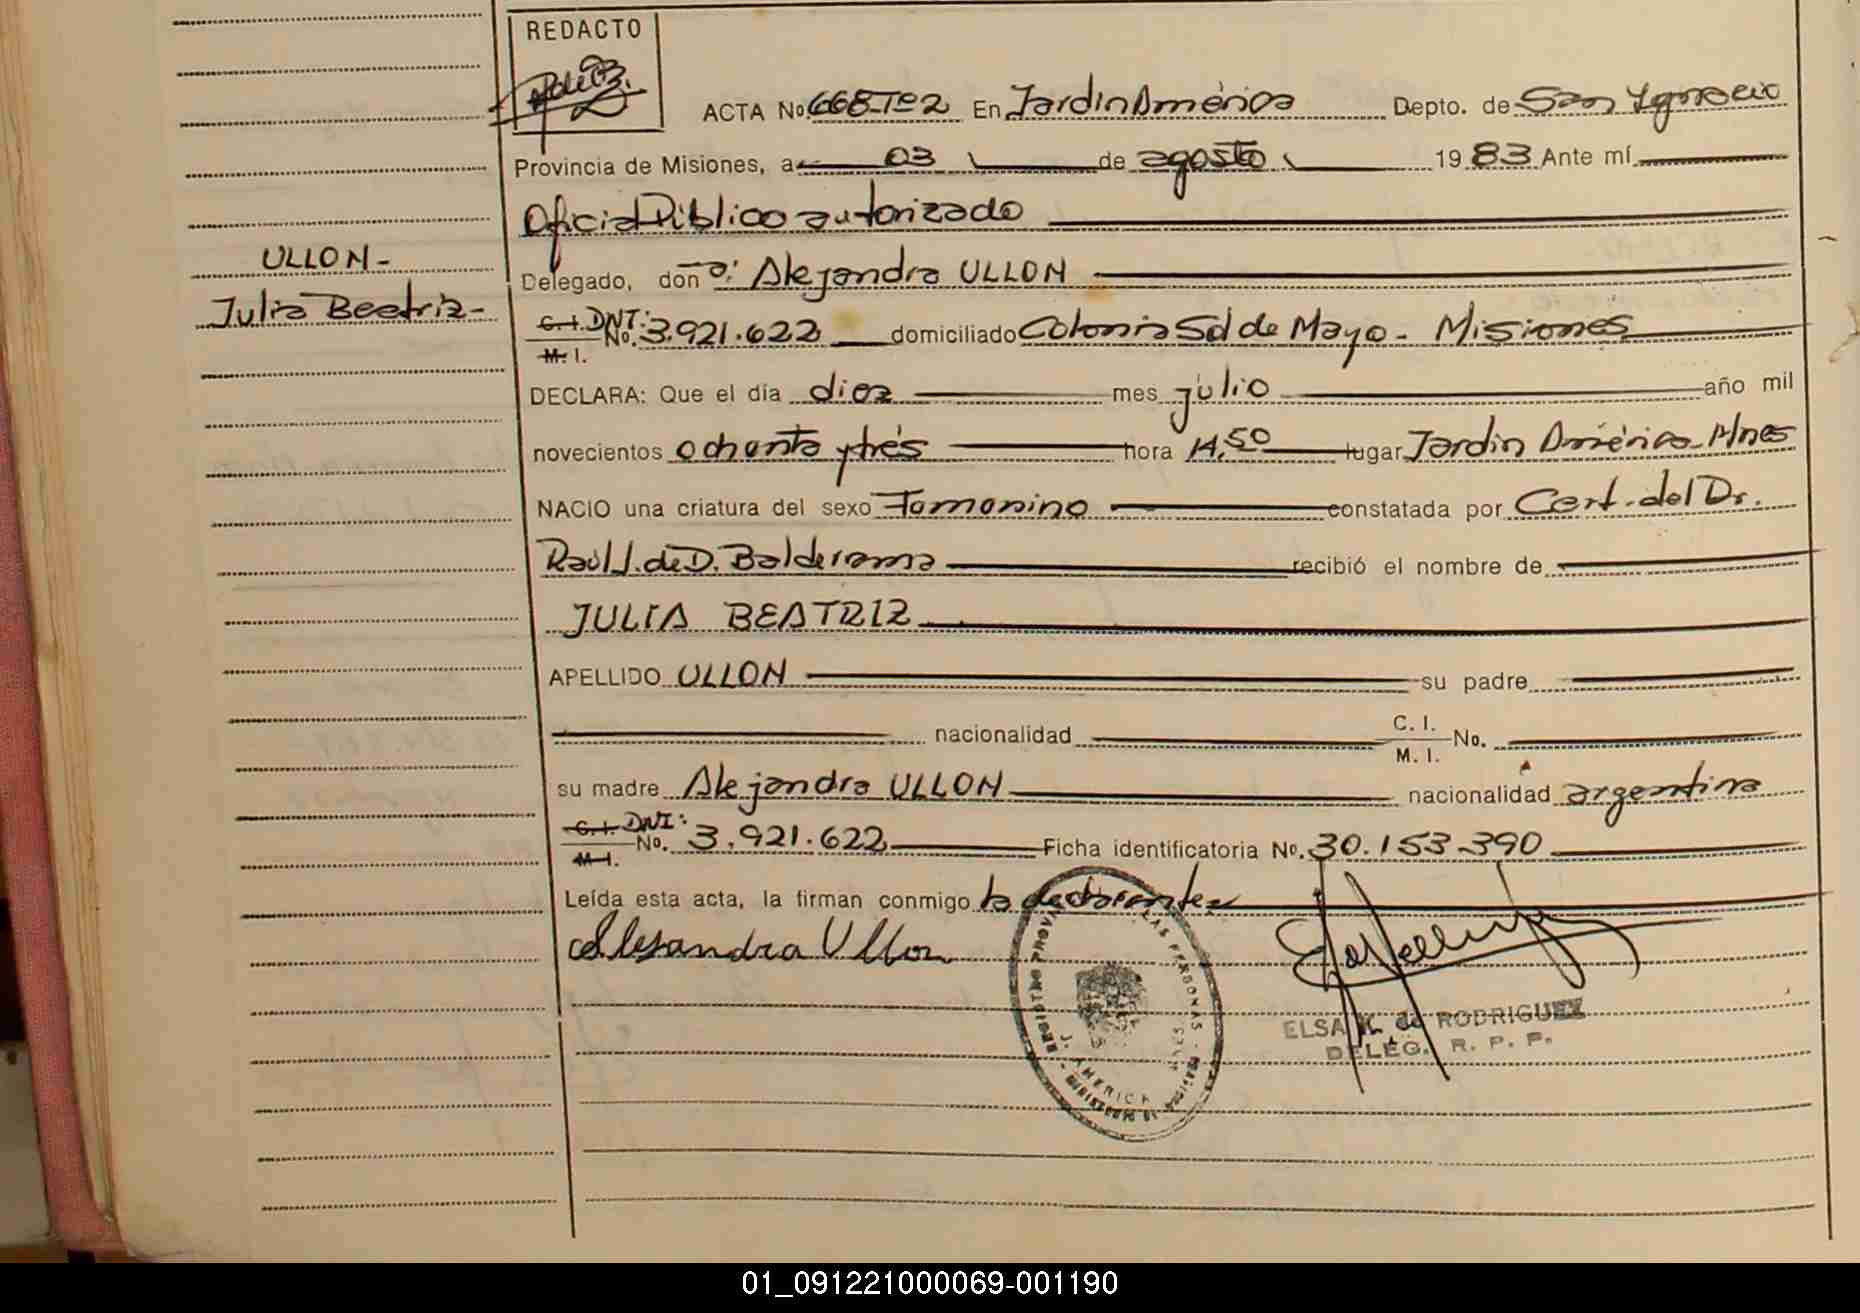 REDACTO
ACTA No. 668 Tº 2 En Jardin América Depto. de San Ignacio
Provincia de Misiones, a 03 de agosto 1983 Ante mí
Oficial Público autorizado
ULLON-
Delegado, don a: Alejandra ULLON
Julia Beatriz-
C. I. DNI: No. 3.921.622 domiciliado Colonia Sol de Mayo - Misiones
M. I.
DECLARA: Que el día diez mes julio año mil
novecientos ochenta y tres hora 14,50 lugar Jardin América - Mnes
NACIO una criatura del sexo Femenino constatada por Cert. del Dr.
Raúl J. de D. Balderrama recibió el nombre de
JULIA BEATRIZ
APELLIDO ULLON su padre
nacionalidad C. I. No.
M. I.
su madre Alejandra ULLON nacionalidad argentina
C. I. DNI: No. 3.921.622 Ficha identificatoria No. 30.153.390
M. I.
Leída esta acta, la firman conmigo la declarante
Alejandra Ullon
REGISTRO PROVINCIAL LAS PERSONAS
J. AMERICA
MISIONES
ELSA de RODRIGUEZ
DELEG. R. P. P.
01_091221000069-001190